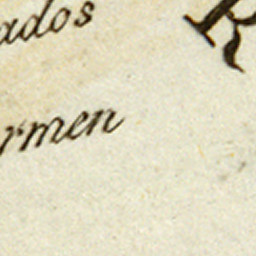 ados
R
rmen